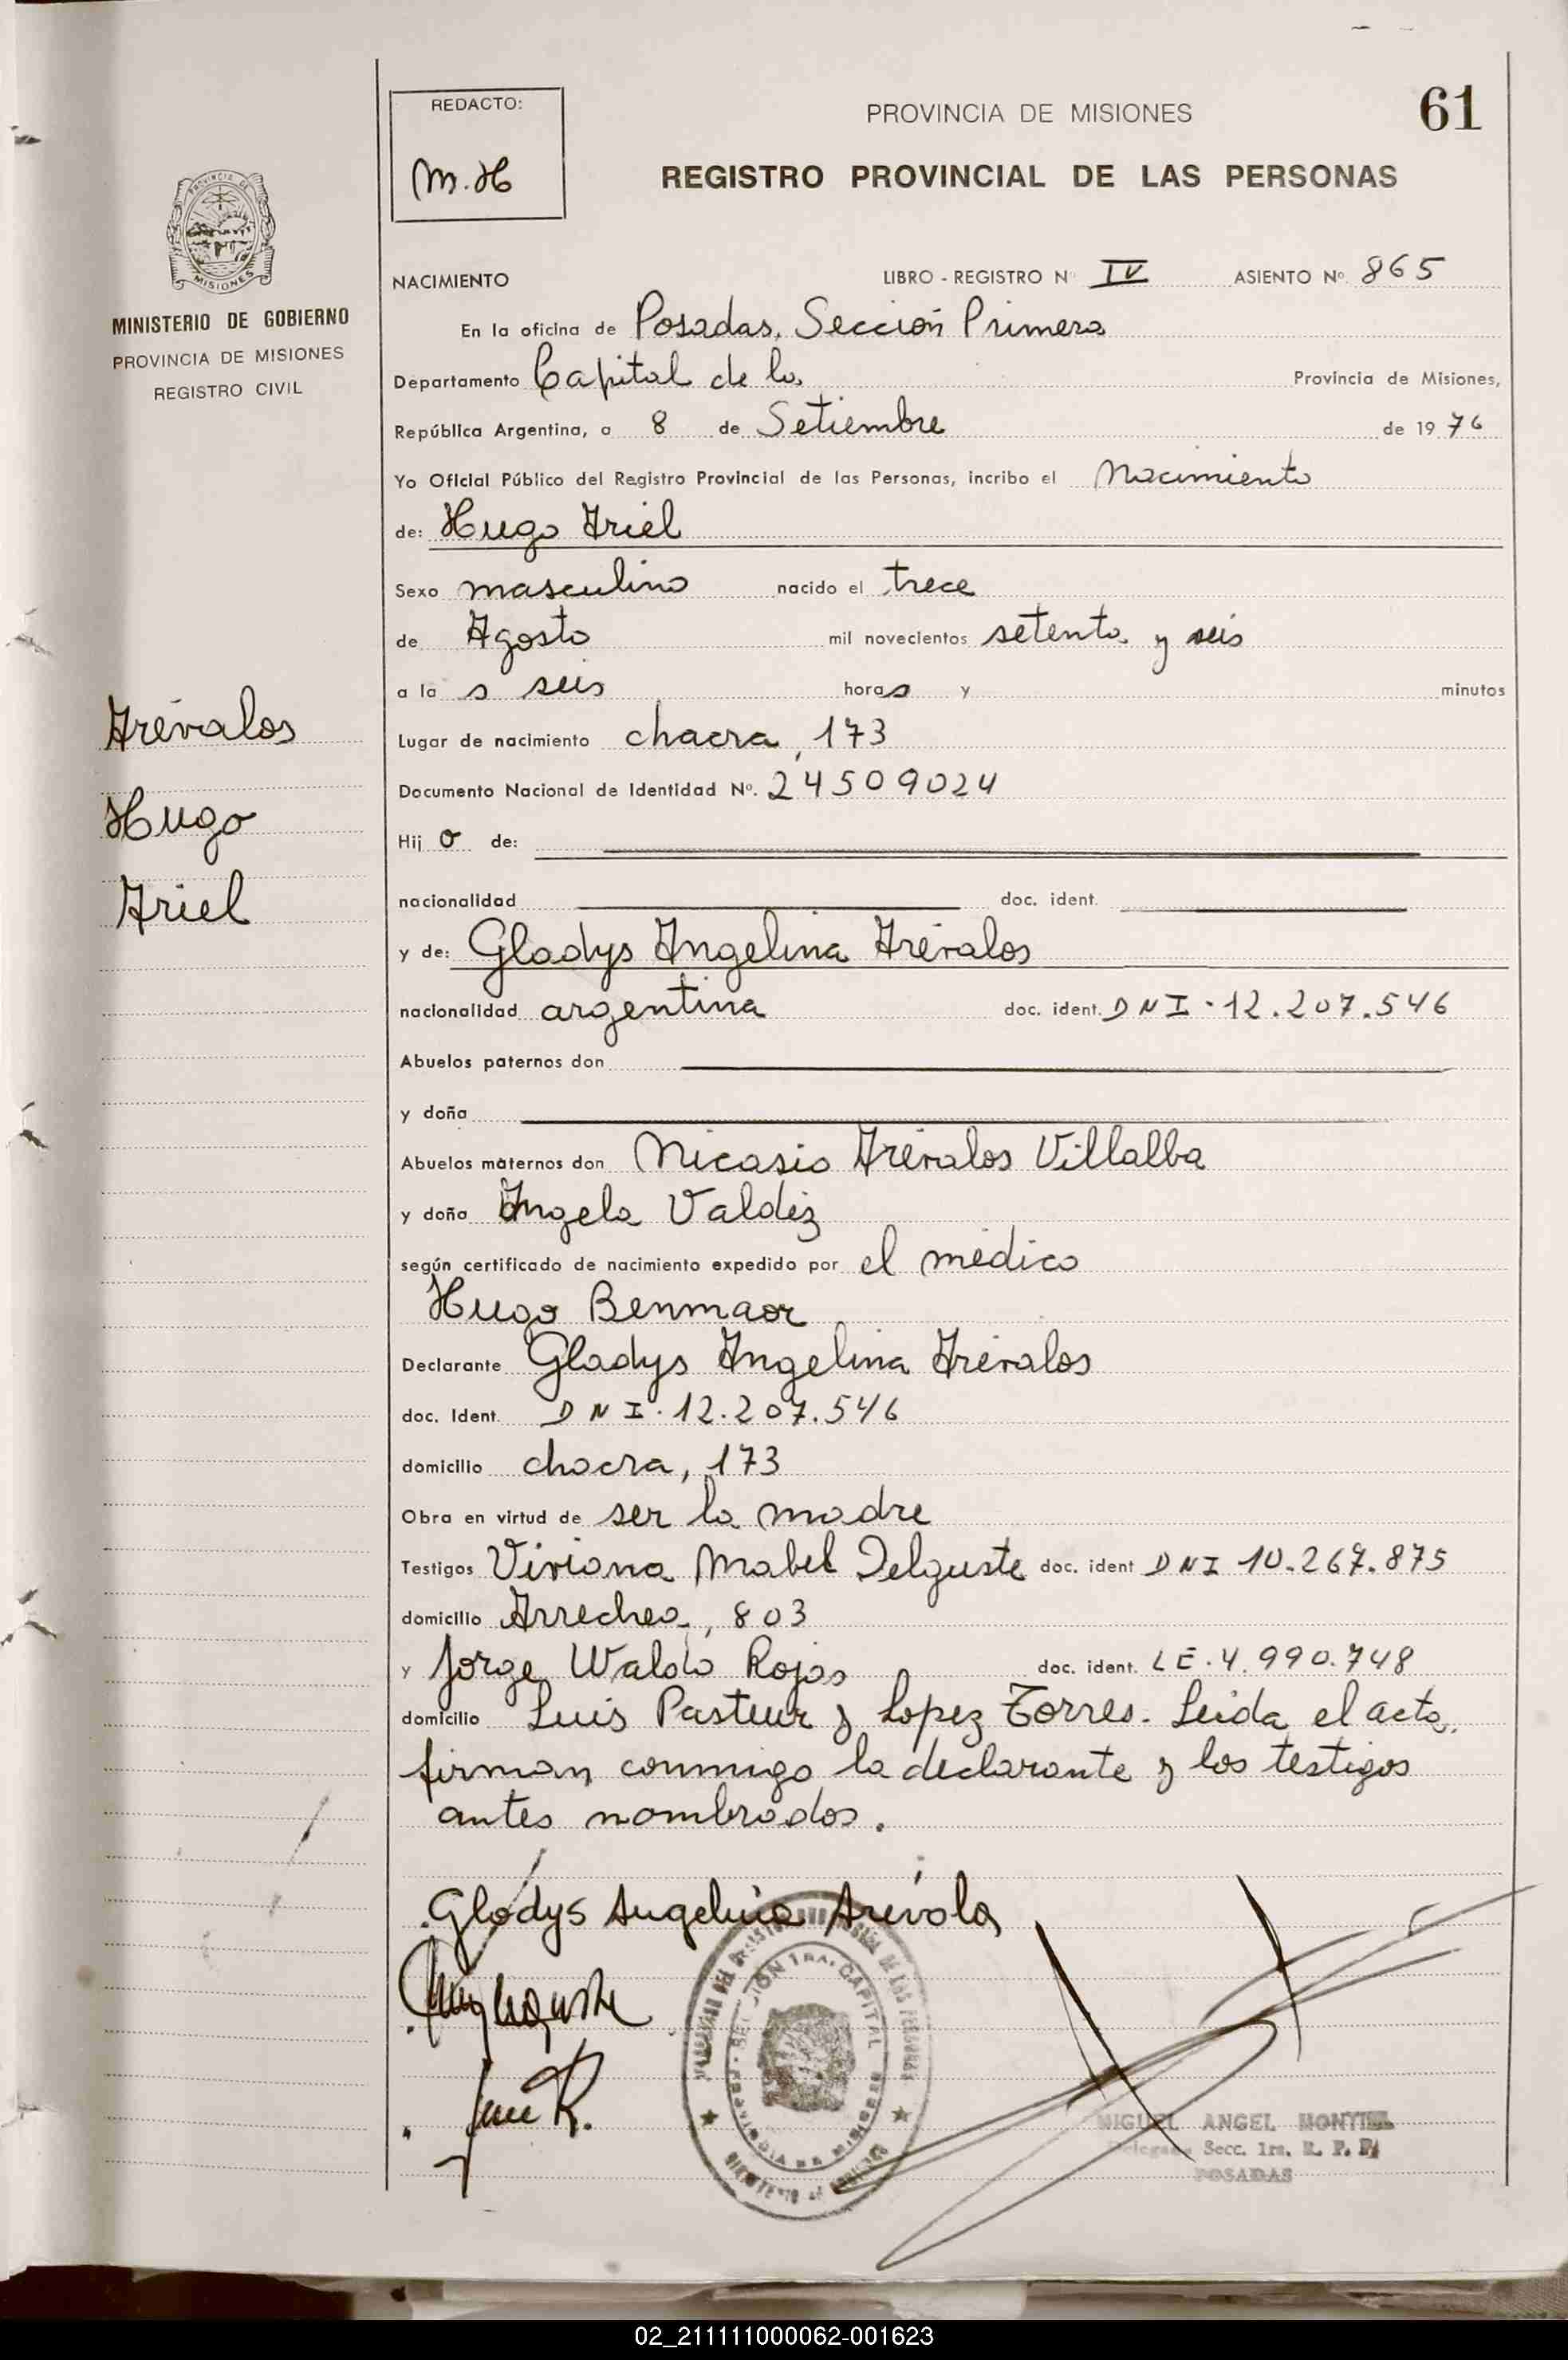 REDACTO:
M.H
PROVINCIA DE MISIONES
61
REGISTRO PROVINCIAL DE LAS PERSONAS
PROVINCIA DE
MISIONES
MINISTERIO DE GOBIERNO
PROVINCIA DE MISIONES
REGISTRO CIVIL
Arévalos
Hugo
Ariel
NACIMIENTO LIBRO - REGISTRO Nº IV ASIENTO Nº. 865
En la oficina de Posadas, Sección Primera
Departamento Capital de la Provincia de Misiones,
República Argentina, a 8 de Setiembre de 1976
Yo Oficial Público del Registro Provincial de las Personas, incribo el Nacimiento
de: Hugo Ariel
Sexo masculino nacido el trece
de Agosto mil novecientos setenta y seis
a la s seis horas y minutos
Lugar de nacimiento chacra, 173
Documento Nacional de Identidad Nº. 24509024
Hij o de:
nacionalidad doc. ident.
y de: Gladys Angelina Arévalos
nacionalidad argentina doc. ident. DNI. 12.207.546
Abuelos paternos don
y doña
Abuelos maternos don Nicasio Arévalos Villalba
y doña Angela Valdéz
según certificado de nacimiento expedido por el médico
Hugo Benmaor
Declarante Gladys Angelina Arévalos
doc. Ident. DNI. 12.207.546
domicilio chacra, 173
Obra en virtud de ser la madre
Testigos Viviana Mabel Delguste doc. ident DNI 10.267.875
domicilio Arrechea, 803
y Jorge Waldo Rojas doc. ident. LE. 4.990.748
domicilio Luis Pasteur y Lopez Torres. Leída el acta,
firman conmigo la declarante y los testigos
antes nombrados.
Gladys Angelina Arévalos
SECCION 1RA. CAPITAL
PROVINCIA DE MISIONES
MIGUEL ANGEL MONTIEL
Delegado Secc. 1ra. R. P. P.
POSADAS
02_211111000062-001623